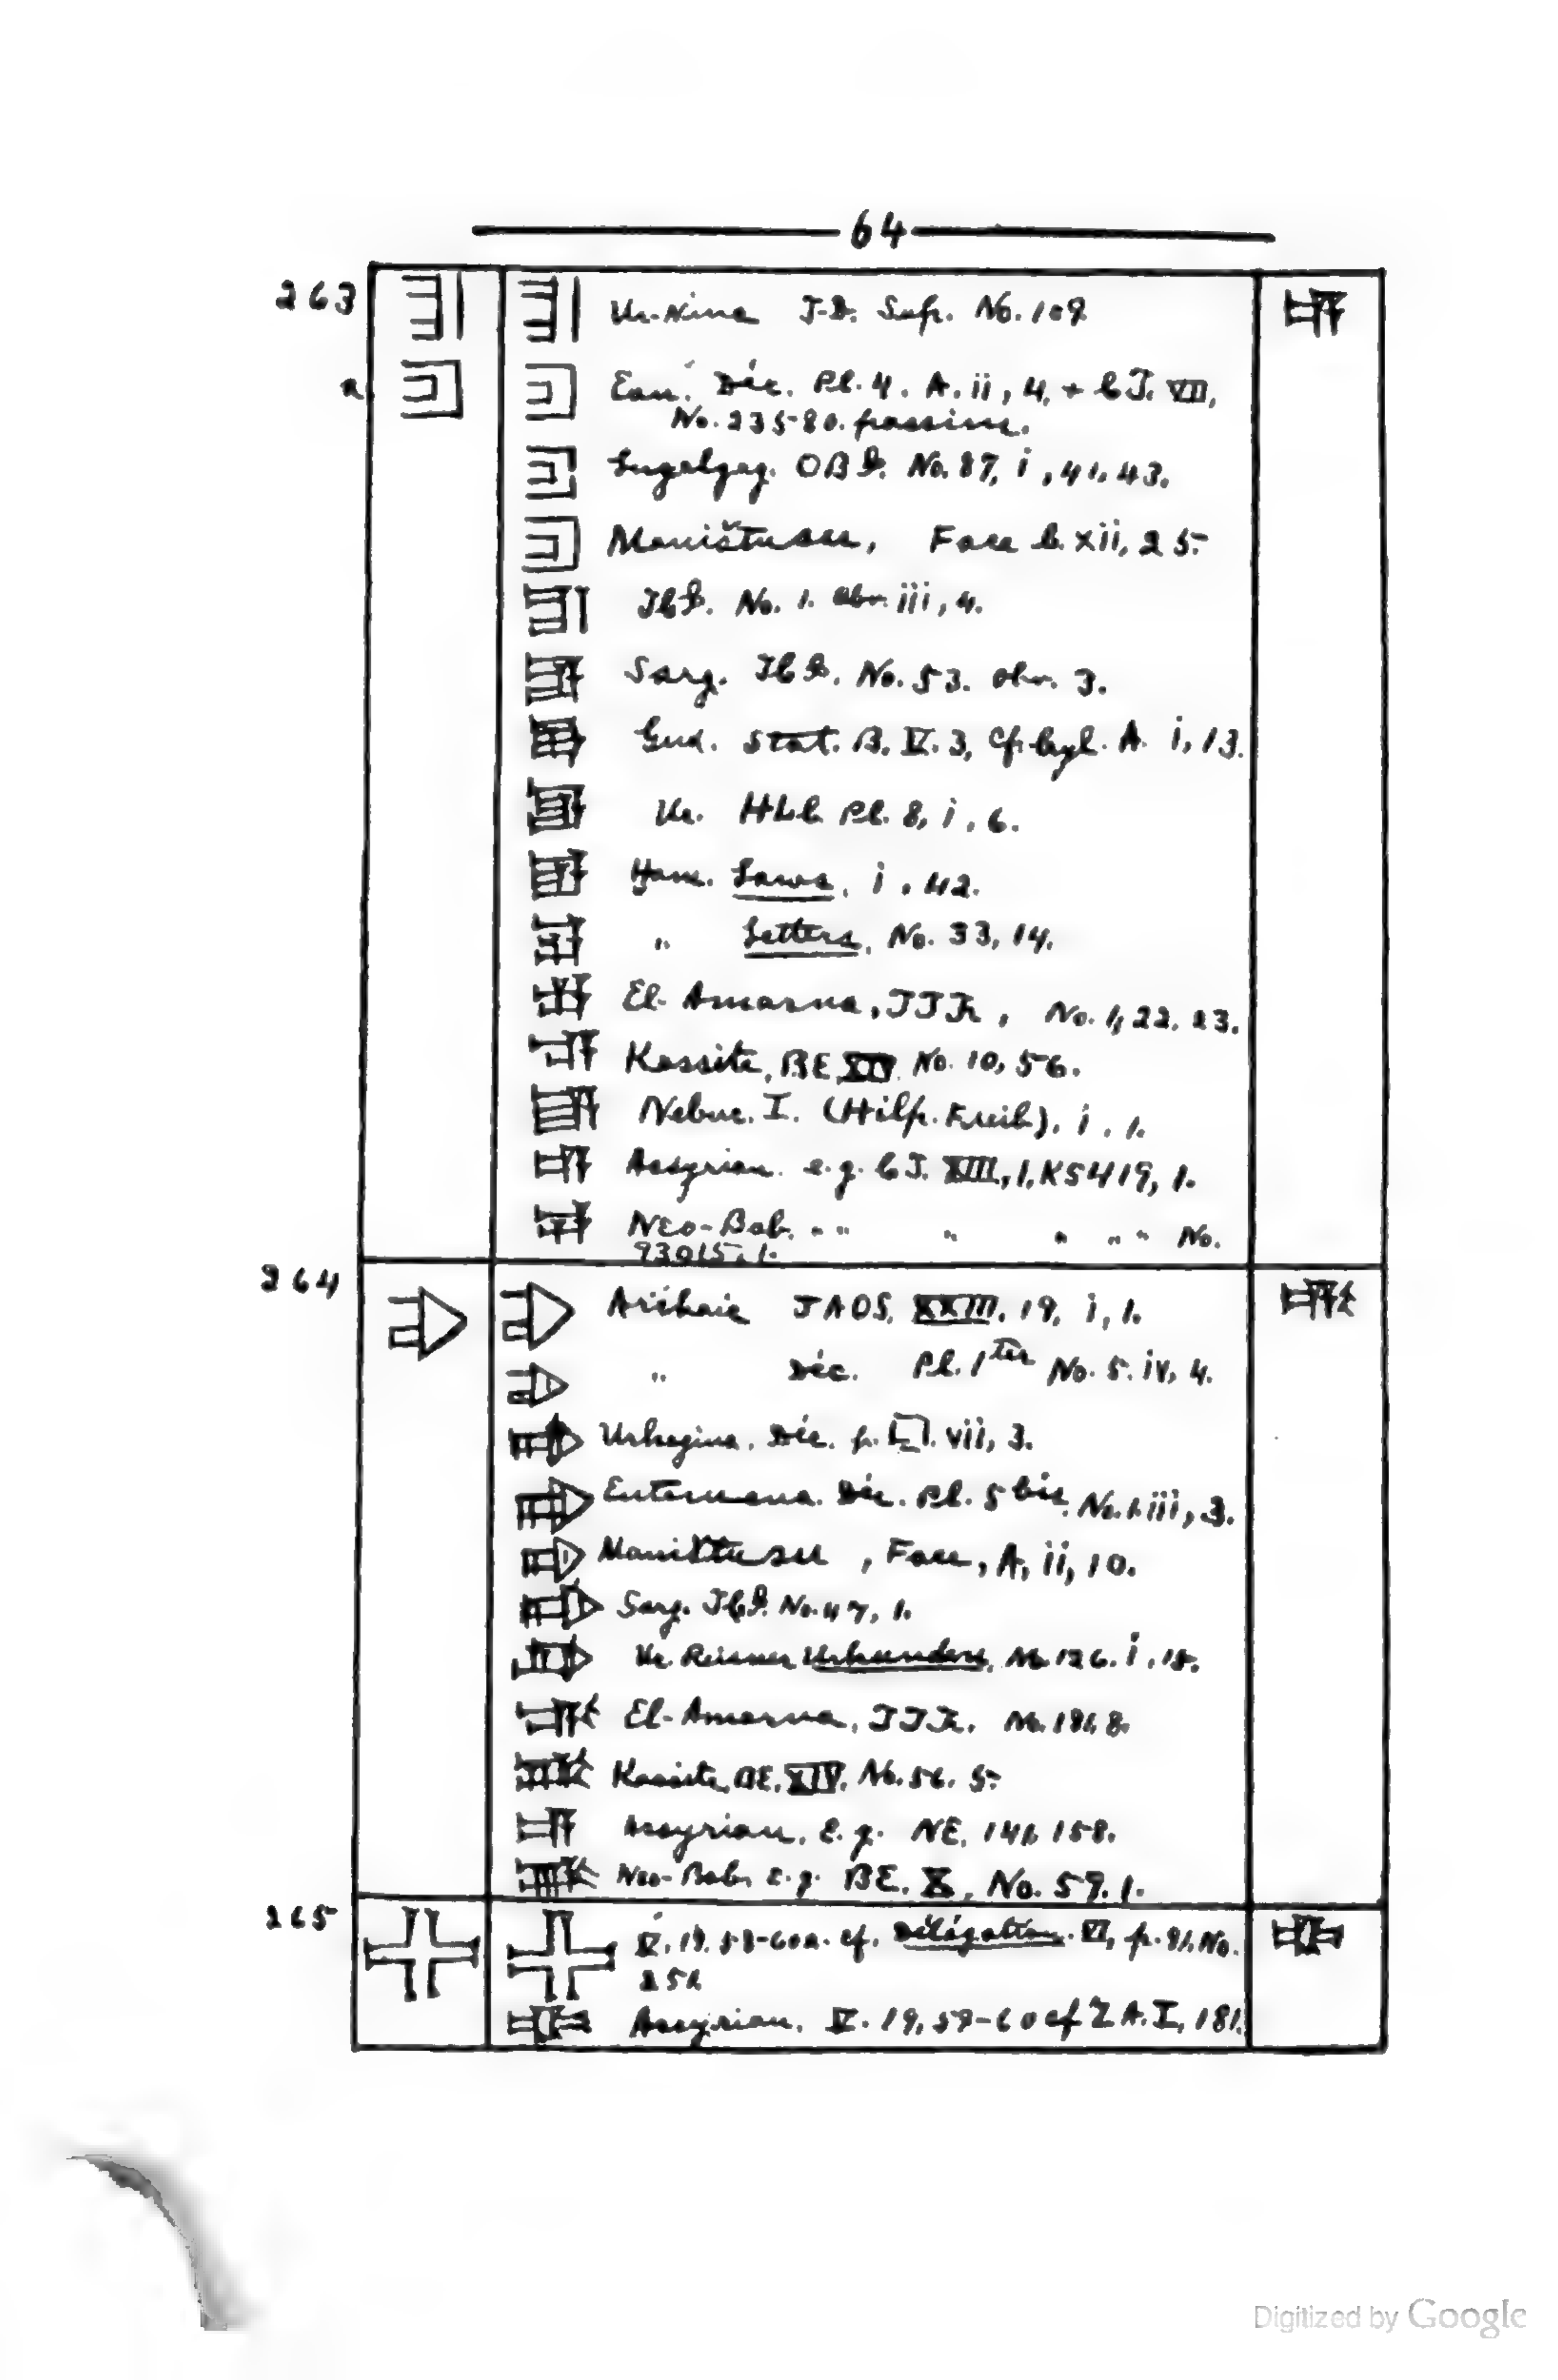 64
263
Ur-Nina T-D. Sup. No. 109
a
Ean. Déc. Pl. 4. A. ii, 4, + CT. VII,
No. 235-80. passim.
Lugalzag. OBI. No. 87, i, 41, 43.
Maništusu, Face B. xii, 25.
No. 1. obv. iii, 4.
Sarg. No. 53. obv. 3.
Gud. Stat. B. V. 3, Cf. Cyl. A. i, 13.
Ur. HLC. Pl. 8, i, 6.
Ham. Laws, i, 42.
" Letters, No. 33, 14.
El-Amarna, No. 1, 22. 23.
Kassite, BE XIV. No. 10, 56.
Nebuc. I. (Hilp. Freib), i, 1.
Assyrian. e.g. CT. XIII, 1, K5419, 1.
Neo-Bab. " " " " " " No.
93015, 1.
264
Archaic JAOS, XXIII, 19, i, 1.
" Déc. Pl. 1 ter No. 5. iv, 4.
Urkagina. Déc. p. L. vii, 3.
Entemena. Déc. Pl. 5 bis. No. 1. iii, 3.
Maništusu, Face, A, ii, 10.
Sarg. No. 47, 1.
Ur. Reisner Urkunden, No. 126. i, 15.
El-Amarna, No. 181, 8.
Kassite, BE. XIV. No. 56. 5.
Assyrian, e.g. NE, 141, 158.
Neo-Bab. e.g. BE. X, No. 59. 1.
265
V. 19. 58-60a. cf. Délégation. VI, p. 91, No.
251
Assyrian. V. 19, 59-60 cf ZA. I, 181.
Digitized by Google